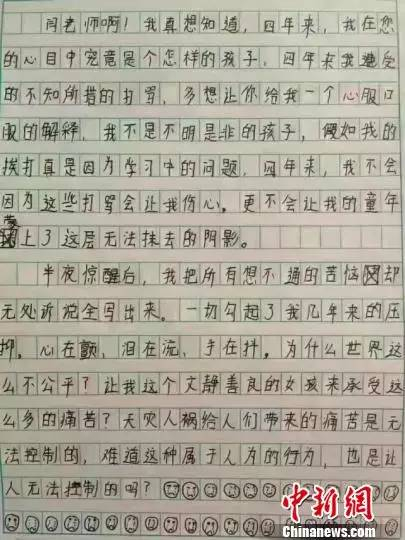 闫老师啊！我真想知道，四年来，我在您
的心目中究竟是个怎样的孩子，四年来我遭受
的不知所措的打骂，多想让你给我一个心服口
服的解释，我不是不明是非的孩子，假如我的
挨打真是因为学习中的问题，四年来，我不会
因为这些打骂会让我伤心。更不会让我的童年
蒙上了这层无法抹去的阴影。
半夜惊醒后，我把所有想不通的苦恼却
无处诉说全写出来。一切勾起了我几年来的压
抑，心在颤，泪在流，手在抖。为什么世界这
么不公平？让我这个文静善良的女孩来承受这
么多的痛苦？天灾人祸给人们带来的痛苦是无
法控制的，难道这种属于人为的行为，也是让
人无法控制的吗？
中新网
Chinanews.com